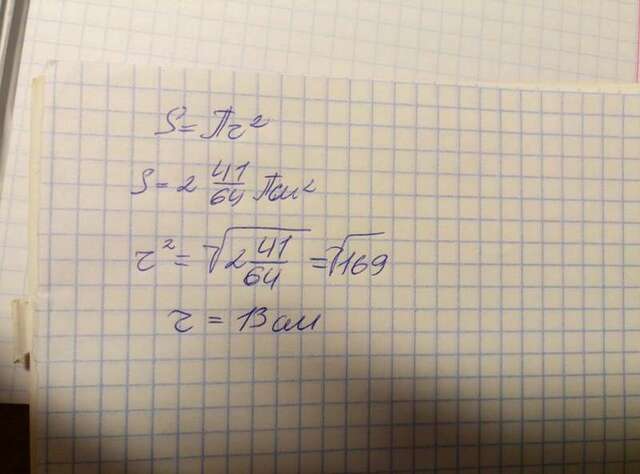 S = Пr²
S = 2 41/64 Псм²
r² = √(2 41/64) = √169
r = 13 см